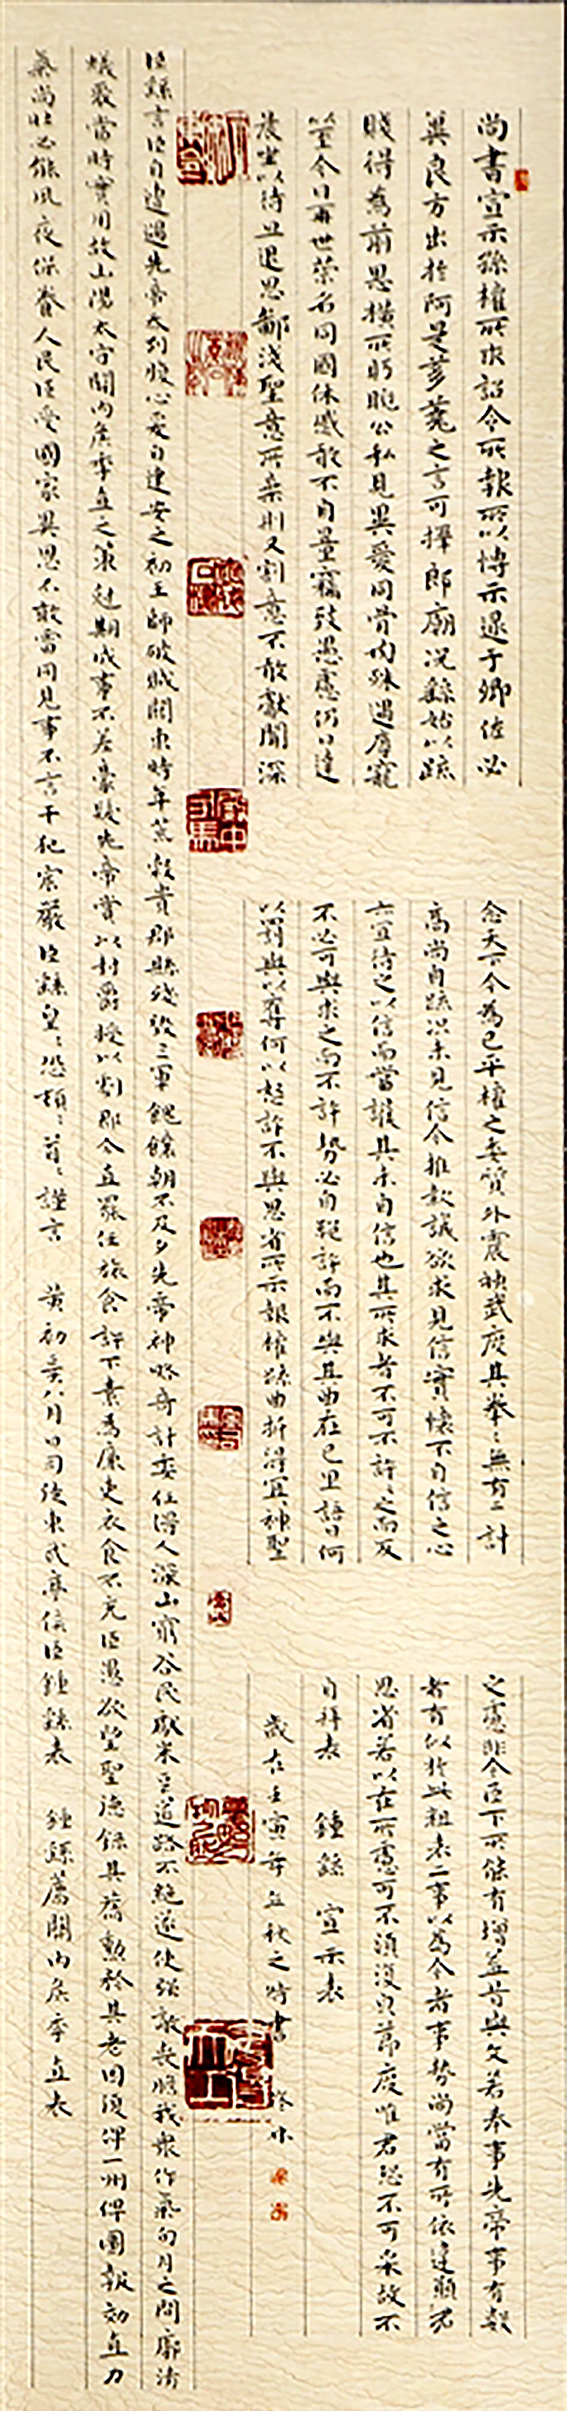 尚書宣示孫權所求詔令所報所以博示逮于卿佐必
冀良方出於阿是芻蕘之言可擇郎廟況繇始以疏
賤得為前恩橫所盼睨公私見異愛同骨肉殊遇厚寵
以至今日再世榮名同國休慼敢不自量竊致愚慮仍日達
晨坐以待旦退思鄙淺聖意所棄則又割意不敢獻聞深
念天下今為已平權之委質外震神武度其拳拳無有二計
高尚自疏況未見信今推款誠欲求見信實懷不自信之心
亦宜待之以信而當護其未自信也其所求者不可不許許之而反
不必可與求之而不許勢必自絕許而不與其曲在己里語曰何
以罰與以奪何以怒許不與思省所示報權疏曲折得宜宜神聖
之慮非今臣下所能有增益昔與文若奉事先帝事有數
者有似於此粗表二事以為今者事勢尚當有所依違願君
思省若以在所慮可不須復皃節度唯君恐不可采故不
自拜表 鍾繇 宣示表
歲在壬寅年立秋之時書
臣繇言臣自遭遇先帝忝列腹心爰自建安之初王師破賊關東時年荒穀貴郡縣殘毀三軍餽饟朝不及夕先帝神略奇計委任得人深山窮谷民獻米豆道路不絕遂使強敵喪膽我眾作氣旬月之間廓清
蟻聚當時實用故山陽太守關內侯季直之策剋期成事不差豪髮先帝賞以封爵授以劇郡今直罷任旅食許下素為廉吏衣食不充臣愚欲望聖德錄其舊勳矜其老困復俾一州俾圖報效直力
氣尚壯必能夙夜保養人民臣受國家異恩不敢雷同見事不言干犯宸嚴臣繇皇皇恐恐頓頓首首謹言 黃初二年八月日司徒東武亭侯臣鍾繇表 鍾繇薦關內侯季直表